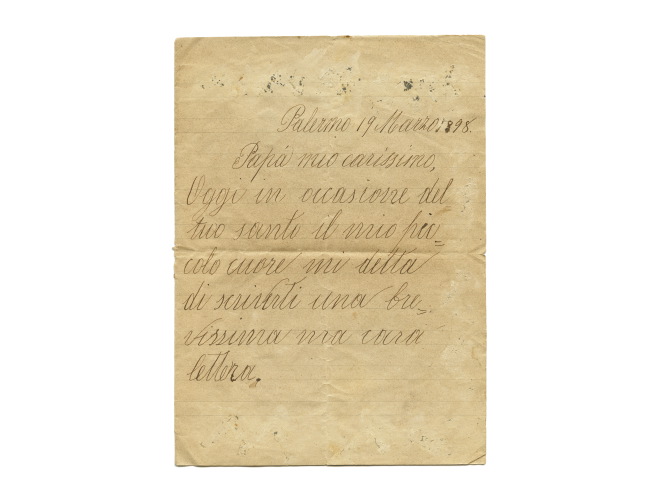 Palermo 19 Marzo 1898.
Papá mio carissimo,
Oggi in occasione del
tuo santo il mio pic=
colo cuore mi detta
di scriverti una bre=
vissima ma cara
lettera.